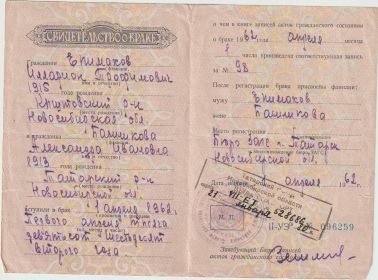 СВИДЕТЕЛЬСТВО о БРАКЕ
Гражданин Екимаков
(фамилия)
Илларион Трофимович
(имя и отчество)
1915 года рождения
Новосибирской обл.
(место рождения)
и гражданка Банникова
(фамилия)
Александра Ивановна
(имя и отчество)
1913 года рождения
Татарский р-н
Новосибирской обл.
(место рождения)
вступили в брак 1 апреля 1962,
Первого апреля тысяча
девятьсот шестьдесят
второго года
о чем в книге записей актов гражданского состояния
о браке 1962 апреля
месяца
1 числа произведена соответствующая запись
за № 98
После регистрации брака присвоены фамилии:
мужу Екимаков
жене Банникова
Бюро ЗАГС г. Татарск
Новосибирской обл.
Дата выдачи апреля 1962 г.
М. П.
VII-ЕТ 628686
21 января 80
II-УЭ № 096259
Заведующий Бюро записей
актов гражданского состояния